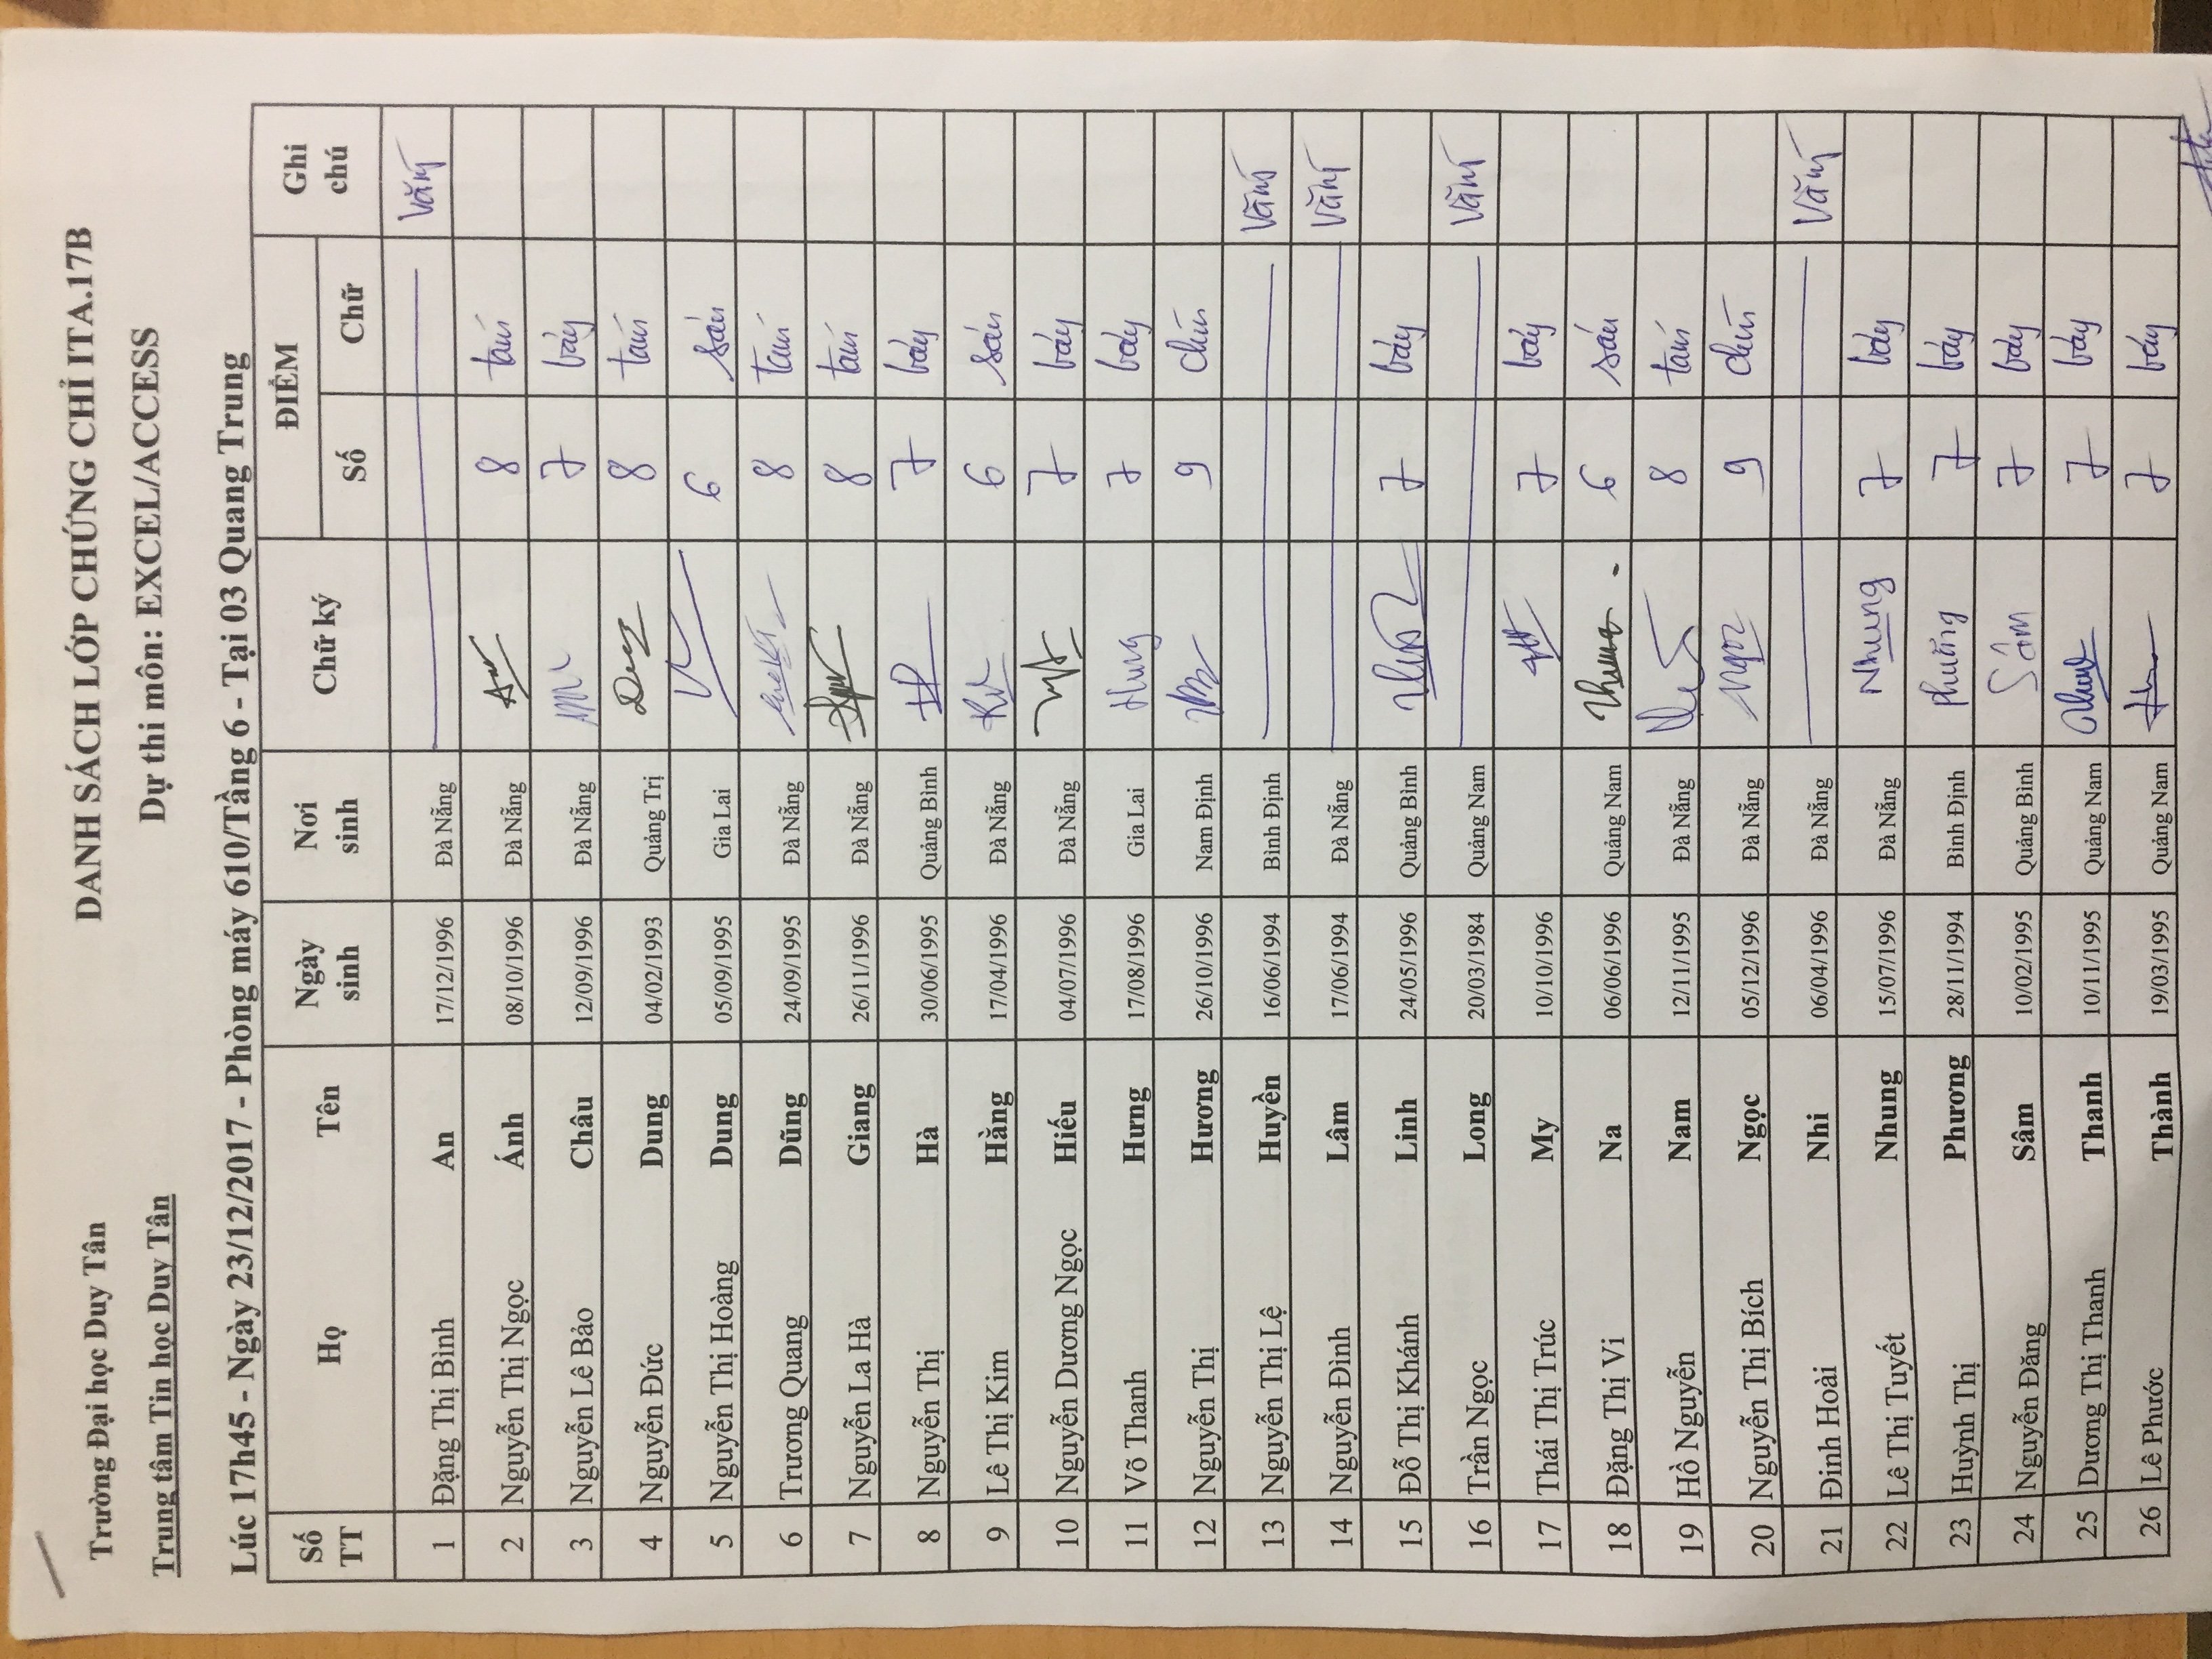 Trường Đại học Duy Tân
DANH SÁCH LỚP CHỨNG CHỈ ITA.17B
Trung tâm Tin học Duy Tân
Dự thi môn: EXCEL/ACCESS
Lúc 17h45 - Ngày 23/12/2017 - Phòng máy 610/Tầng 6 - Tại 03 Quang Trung
Số TT Họ Tên Ngày sinh Nơi sinh Chữ ký ĐIỂM Ghi chú
Số Chữ
1 Đặng Thị Bình An 17/12/1996 Đà Nẵng Vắng
2 Nguyễn Thị Ngọc Ánh 08/10/1996 Đà Nẵng 8 tám
3 Nguyễn Lê Bảo Châu 12/09/1996 Đà Nẵng 7 bảy
4 Nguyễn Đức Dung 04/02/1993 Quảng Trị 8 tám
5 Nguyễn Thị Hoàng Dung 05/09/1995 Gia Lai 6 sáu
6 Trương Quang Dũng 24/09/1995 Đà Nẵng 8 tám
7 Nguyễn La Hà Giang 26/11/1996 Đà Nẵng 8 tám
8 Nguyễn Thị Hà 30/06/1995 Quảng Bình 7 bảy
9 Lê Thị Kim Hằng 17/04/1996 Đà Nẵng 6 sáu
10 Nguyễn Dương Ngọc Hiếu 04/07/1996 Đà Nẵng 7 bảy
11 Võ Thanh Hưng 17/08/1996 Gia Lai Hung 7 bảy
12 Nguyễn Thị Hương 26/10/1996 Nam Định 9 chín
13 Nguyễn Thị Lệ Huyền 16/06/1994 Bình Định Vắng
14 Nguyễn Đình Lâm 17/06/1994 Đà Nẵng Vắng
15 Đỗ Thị Khánh Linh 24/05/1996 Quảng Bình 7 bảy
16 Trần Ngọc Long 20/03/1984 Quảng Nam Vắng
17 Thái Thị Trúc My 10/10/1996 7 bảy
18 Đặng Thị Vi Na 06/06/1996 Quảng Nam 6 sáu
19 Hồ Nguyễn Nam 12/11/1995 Đà Nẵng 8 tám
20 Nguyễn Thị Bích Ngọc 05/12/1996 Đà Nẵng Ngọc 9 chín
21 Đinh Hoài Nhi 06/04/1996 Đà Nẵng Vắng
22 Lê Thị Tuyết Nhung 15/07/1996 Đà Nẵng Nhung 7 bảy
23 Huỳnh Thị Phương 28/11/1994 Bình Định Phương 7 bảy
24 Nguyễn Đăng Sâm 10/02/1995 Quảng Bình Sâm 7 bảy
25 Dương Thị Thanh Thanh 10/11/1995 Quảng Nam 7 bảy
26 Lê Phước Thành 19/03/1995 Quảng Nam 7 bảy